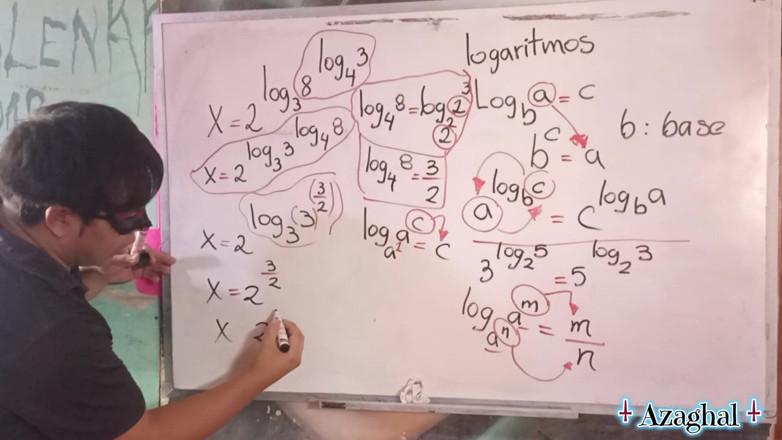 LENA
logaritmos
x = 2^{log_3 8^{log_4 3}}
x = 2^{log_3 3^{log_4 8}}
x = 2^{log_3 (3)^{(3/2)}}
x = 2^{3/2}
x 2
log_4 8 = log_{2^2} 2^3
log_4 8 = 3/2
log_a a^c = c
Log_b a = c
b^c = a
b : base
a^{log_b c} = c^{log_b a}
3^{log_2 5} = 5^{log_2 3}
log_{a^n} a^m = m/n
Azaghal